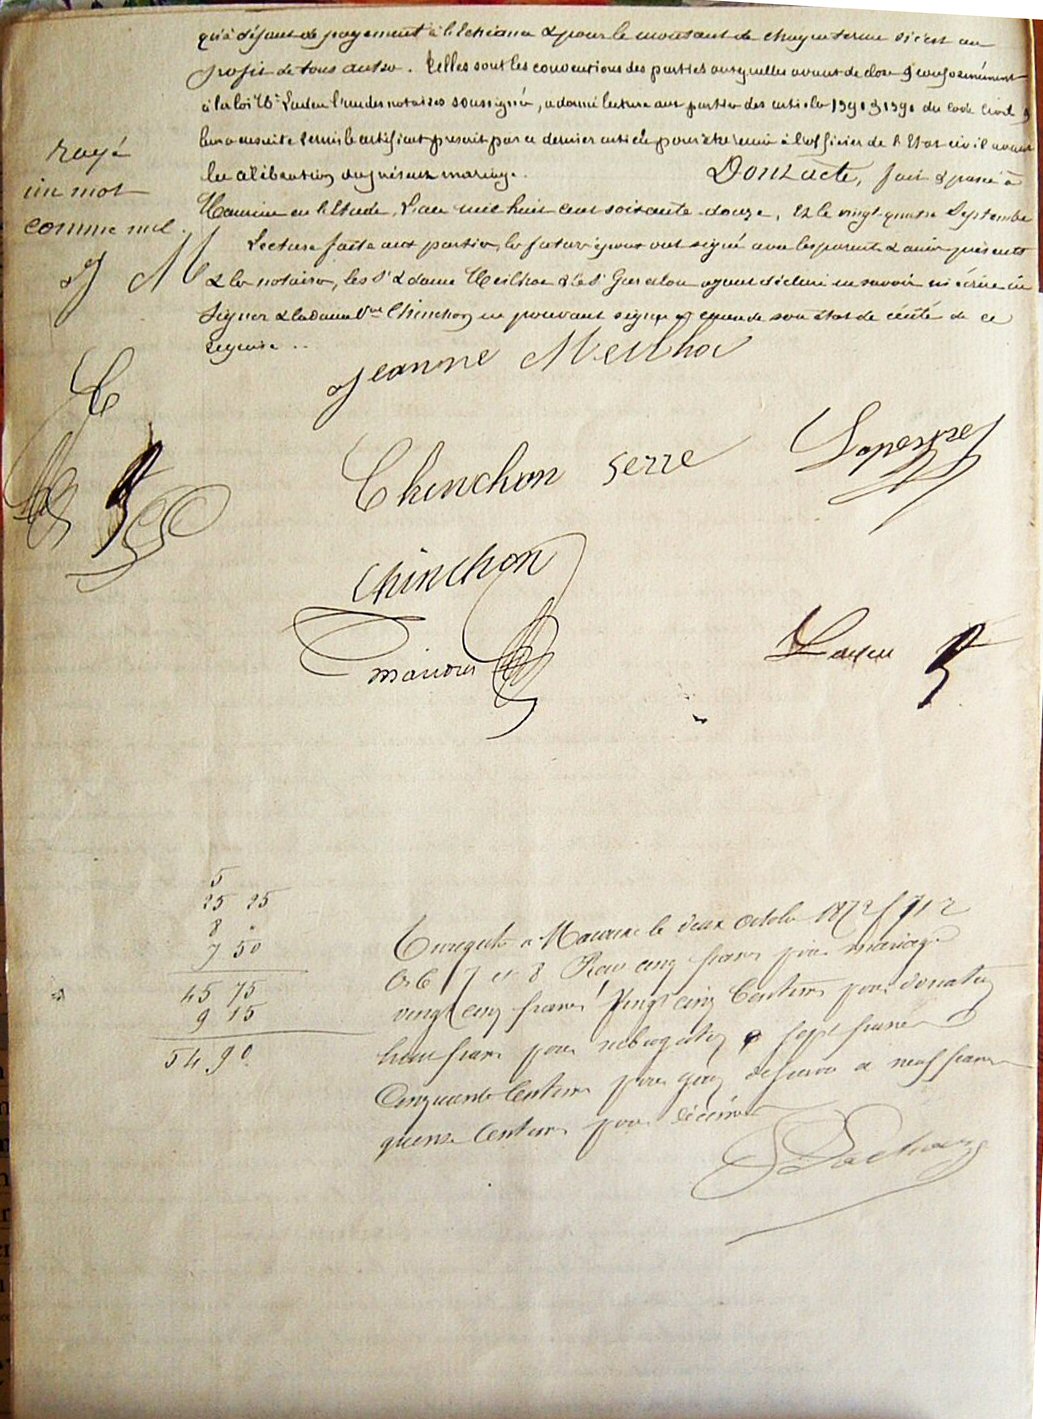 qu'à défaut de payement à l'échéance & pour le montant de chaque terme si c'est au
profit de tous autre. Telles sont les conventions des parties auxquelles avant de clore & conformément
à la loi Me Laden l'un des notaires soussignés, a donné lecture aux parties des articles 1391 & 1394 du Code Civil &
leur a ensuite remis le certificat prescrit par ce dernier article pour être remis à l'officier de l'Etat civil avant
la célébration du présent mariage.
Dont acte, fait & passé à
en l'Etude, L'an mil huit cent soixante douze, Et le vingt quatre Septembre
Lecture faite aux parties, les futurs époux ont signé avec les parents & amis présents
& les notaires, les Sr & dame Meilhoc & le Sr ayant déclaré ne savoir ni écrire ni
signer & la dame Vve Chinchon ne pouvant signer à cause de son état de cécité de ce
requise ..
rayé
un mot
comme nul.
J M
Jeanne Meilhoc
Chinchon Serre Laperre
Chinchon
5
25 25
8 "
7 50
45 75
9 15
54,90
Enregistré à le deux octobre 1872 f 71 2
Cs 6 7 et 8 Reçu cinq francs pour mariage
vingt cinq francs Vingt cinq Centimes pour donation
huit francs pour subrogation & sept francs
Cinquante Centimes pour et neuf francs
quinze Centimes pour décimes